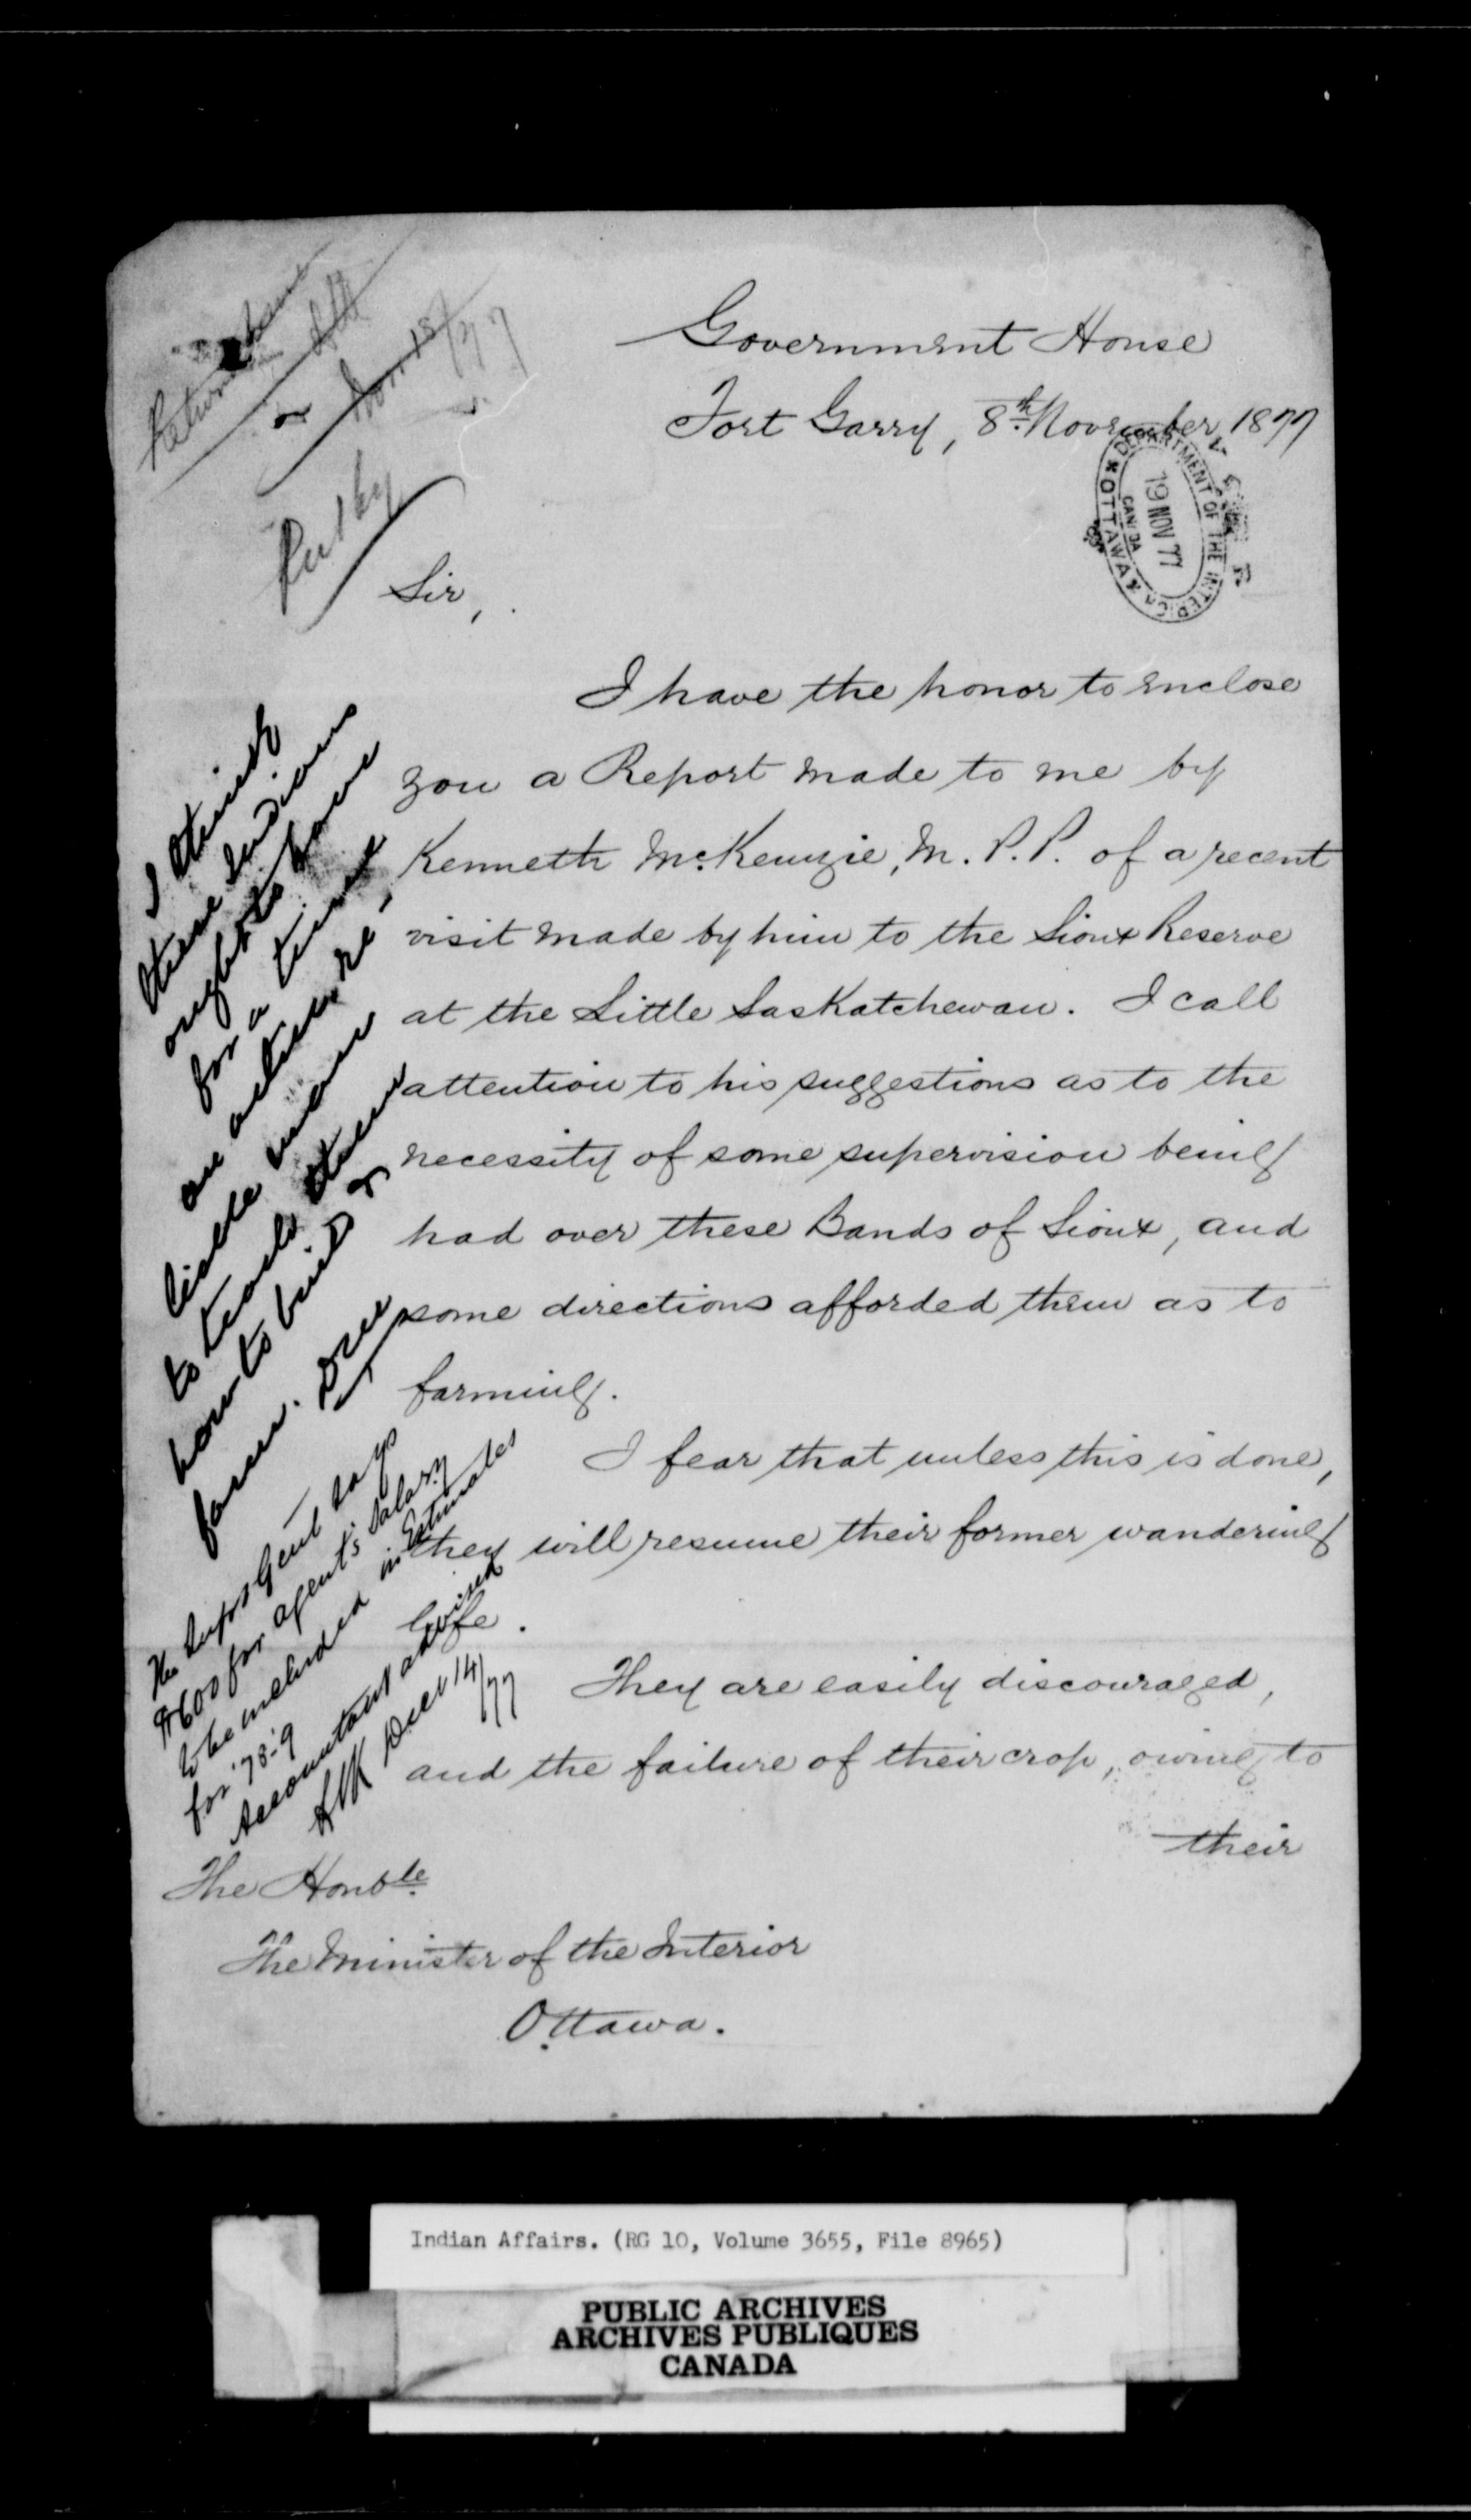 Government House
Fort Garry, 8th. November 1877
DEPARTMENT OF THE INTERIOR
19 NOV 77
CANADA
OTTAWA
Sir,
I have the honor to enclose
you a Report made to me by
Kenneth McKenzie, M.P.P. of a recent
visit made by him to the Sioux Reserve
at the Little Saskatchewan. I call
attention to his suggestions as to the
necessity of some supervision being
had over these Bands of Sioux, and
some directions afforded them as to
farming.
I fear that unless this is done,
they will resume their former wandering
life.
They are easily discouraged,
and the failure of their crop, owing to
their
The Honble
The Minister of the Interior
Ottawa.
I think
these Indians
ought to have
for a time
an active, re-
liable man
to teach them
how to build &
farm.
The Supt Genl says
$600 for agent's salary
to be included in Estimates
for '78-9
Accountant advised
Decr 14/77
Indian Affairs. (RG 10, Volume 3655, File 8965)
PUBLIC ARCHIVES
ARCHIVES PUBLIQUES
CANADA